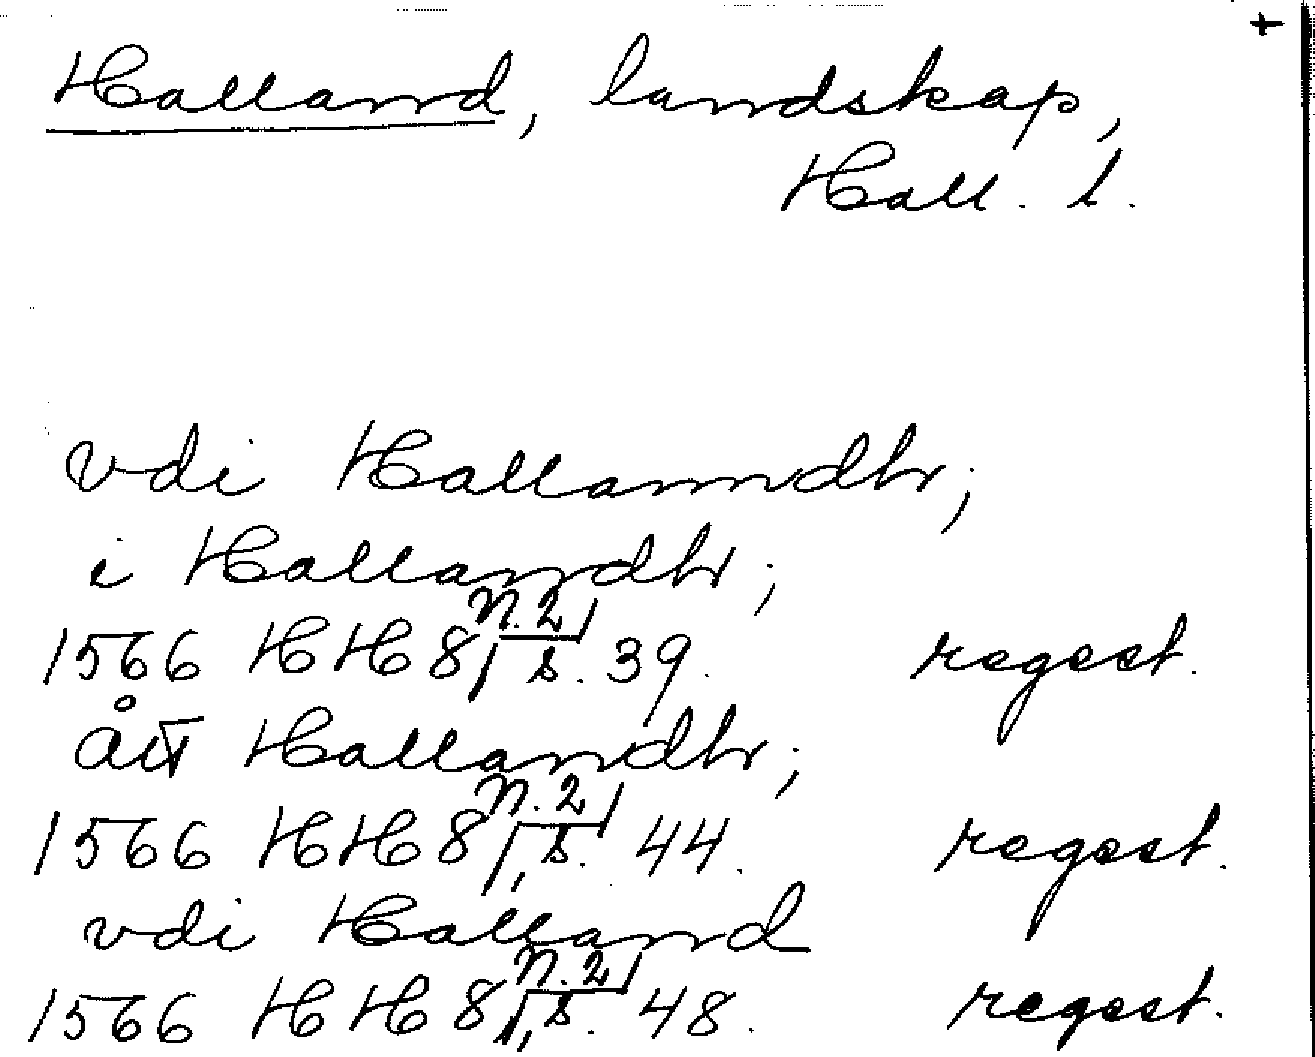 +
Halland, landskap,
Hall. l.
vdi Hallanndh;
i Hallandh;
1566 HH 8, n. 2, s. 39. regest.
ått Hallandh;
1566 HH 8, n. 2, s. 44. regest.
vdi Halland
1566 HH 8, n. 2, s. 48. regest.